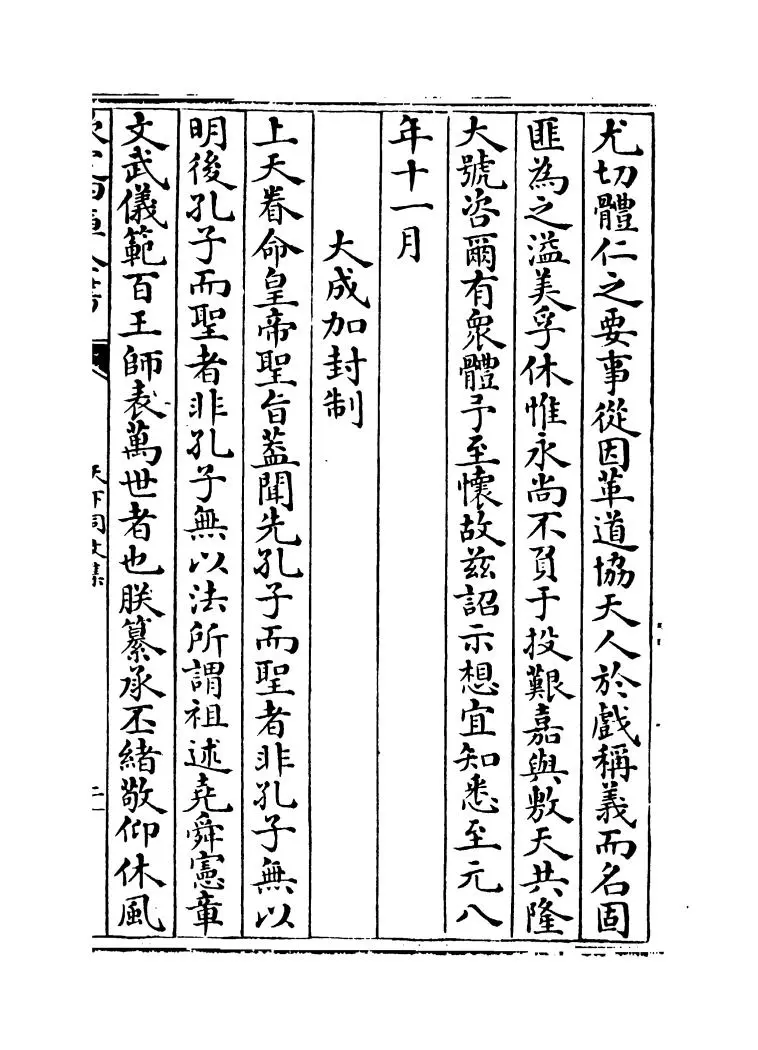 尤切體仁之要事從因革道協天人於戲稱義而名固
匪為之溢美孚休惟永尚不負于投艱嘉與敷天共隆
大號咨爾有衆體予至懷故兹詔示想宜知悉至元八
年十一月
大成加封制
上天眷命皇帝聖旨葢聞先孔子而聖者非孔子無以
明後孔子而聖者非孔子無以法所謂祖述堯舜憲章
文武儀範百王師表萬世者也朕纂承丕緒敬仰休風
天下同文集
二